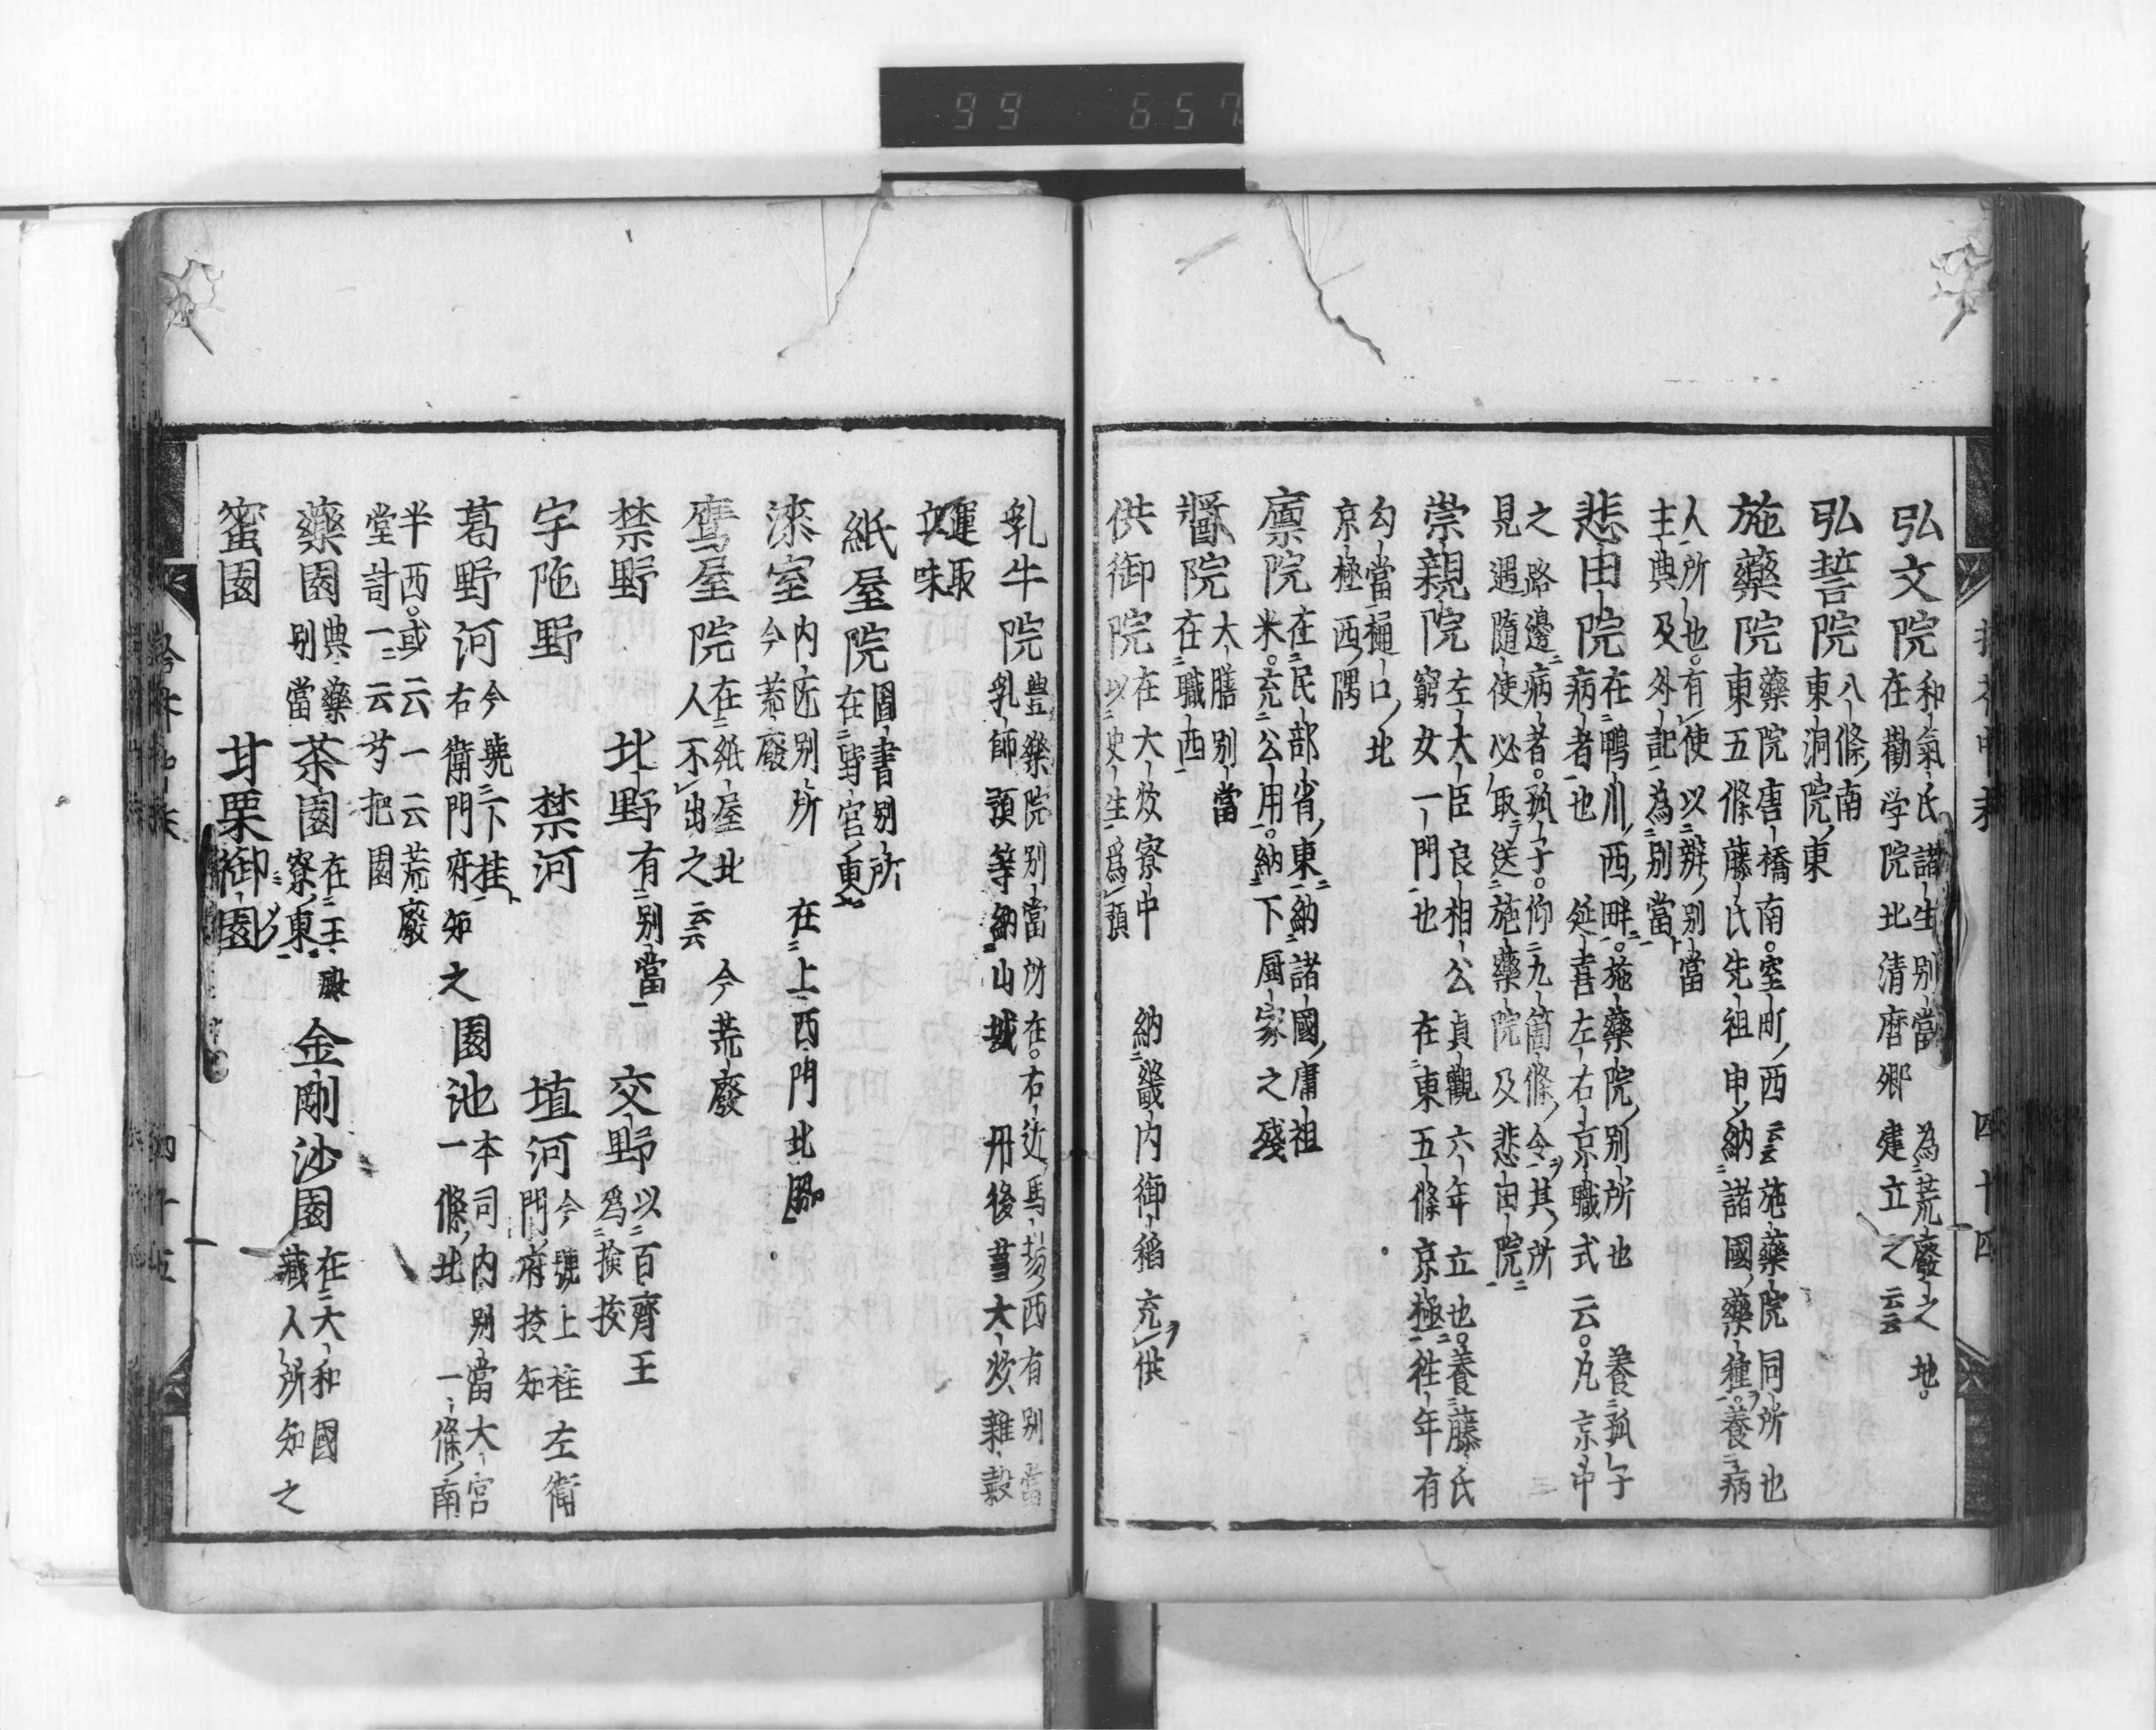 99 657
弘文院 和氣氏諸生別當 為荒廢之地。
在勸学院北清麿郷 建立之云云
弘誓院 八條南
東洞院東
施藥院 藥院唐橋南。室町西云云施藥院同所也
東五條藤氏先祖申納諸國藥種。養病
人所也。有使以辨別當
主典及外記為別當
悲田院 在鴨川西畔。施藥院別所也 養孤子
病者也 延喜左右京職式云。凡京中
之路邊病者。孤子。仰九箇條令其所
見遇隨使必取送施藥院及悲田院
崇親院 左大臣良相公貞觀六年立也。養藤氏
窮女一門也 在東五條京極往年有
勾當樋口北
京極西隅
廩院 在民部省東納諸國庸祖
米。充公用。納下厨家之殘
醬院 大膳別當
在職西
供御院 在大炊寮中 納畿内御稻充供
以史生為預
四十四
乳牛院 豊藥院別當所在。右近馬塲西有別當
乳師預等納山城 丹後䒭大炊雜穀
運取
立味
紙屋院 圖書別所
在野宮東
漆室 内匠別所 在上西門北脇
今荒廢
鷹屋院 在紙屋北 今荒廢
人不出之云云
禁野 北野有別當 交野 以百齊王
為撿挍
宇陁野 禁河 埴河 今號上桂左衛
門府撿知
葛野河 今號下桂 園池 本司内別當大宮
右衛門府知之 一條北 一條南
半西。或云一云荒廢
堂哥一云芍把園
藥園 典藥 茶園 在主殿 金剛沙園 在大和國
別當 寮東 藏人所知之
蜜園 甘栗御園